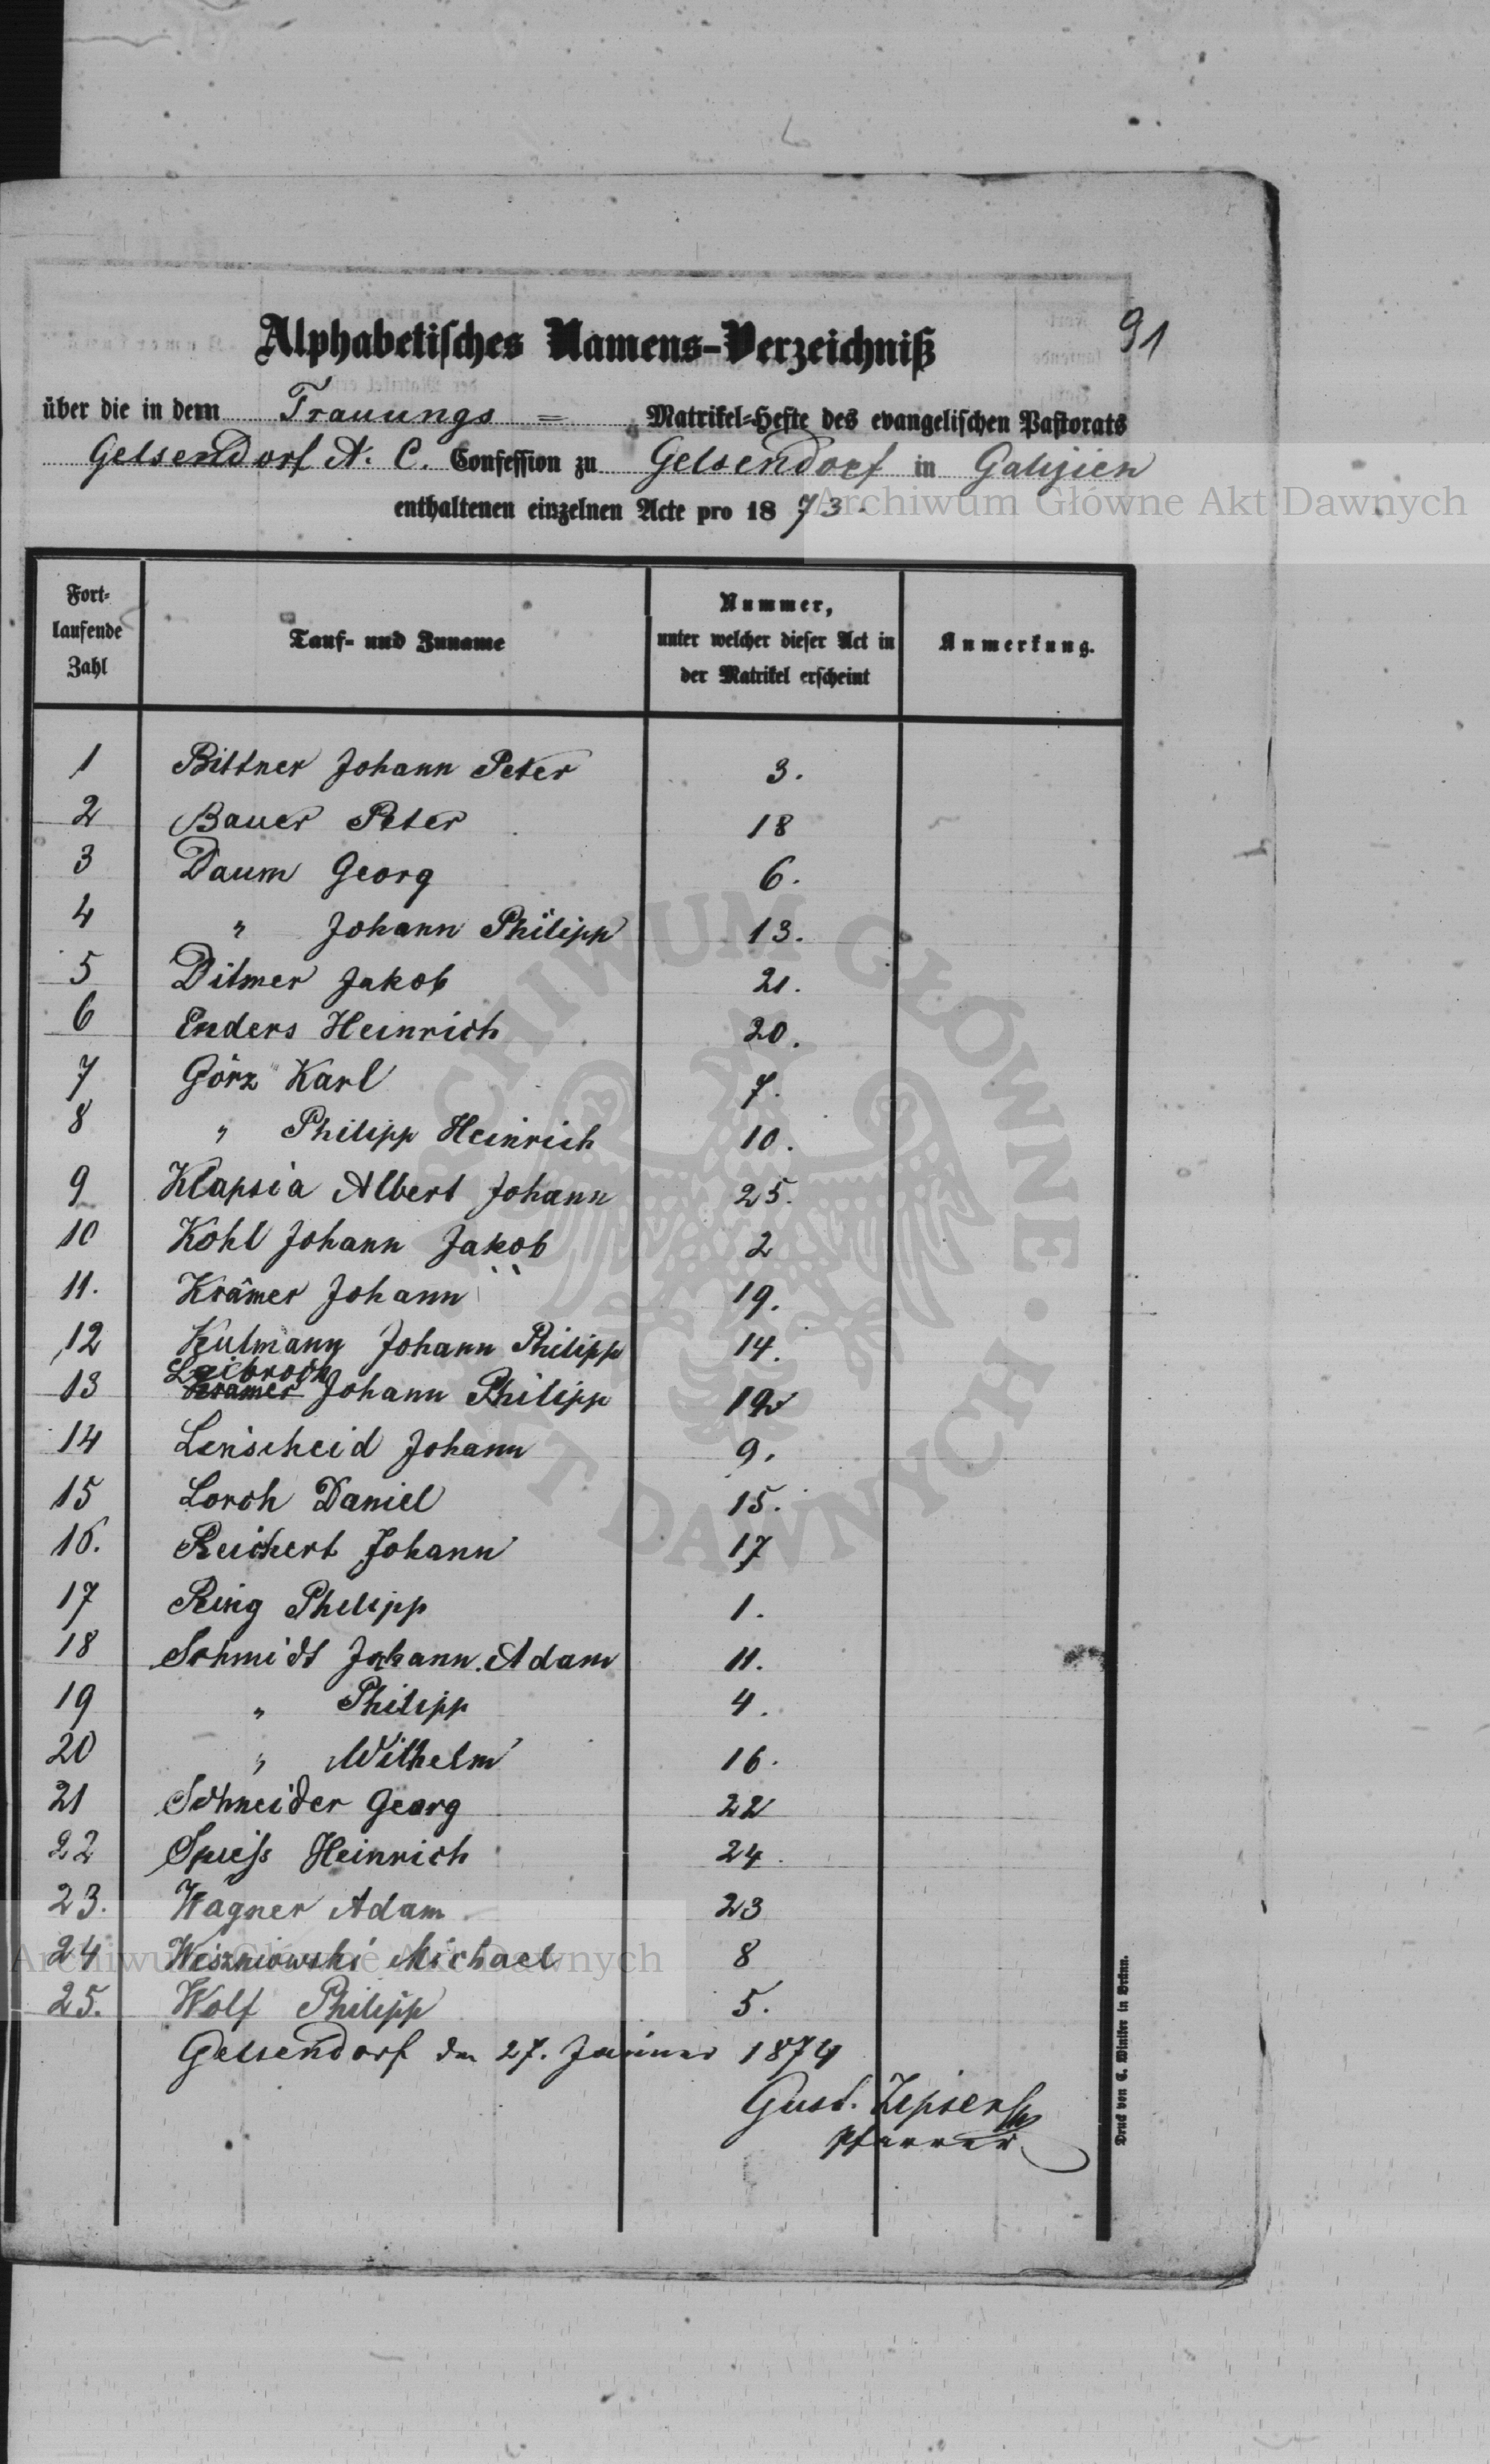 91
Alphabetisches Namens-Verzeichniß
über die in dem Trauungs = Matrikel-Hefte des evangelischen Pastorats
Gelsendorf A. C. Confession zu Gelsendorf in Galizien
enthaltenen einzelnen Acte pro 1873.
Archiwum Główne Akt Dawnych
Fort-laufende Zahl | Tauf- und Zuname | Nummer, unter welcher dieser Act in der Matrikel erscheint | Anmerkung.
1 Bittner Johann Peter 3.
2 Bauer Peter 18
3 Daum Georg 6.
4 " Johann Philipp 13.
5 Ditmer Jakob 21.
6 Enders Heinrich 20.
7 Görz Karl 7.
8 " Philipp Heinrich 10.
9 Klapsia Albert Johann 25.
10 Kohl Johann Jakob 2
11. Krämer Johann 19.
12 Kulmann Johann Philipp 14.
Leibrock
13 Kramer Johann Philipp 12
14 Lenscheid Johann 9.
15 Lorch Daniel 15.
16. Reichert Johann 17
17 Ring Philipp 1.
18 Schmidt Johann Adam 11.
19 " Philipp 4.
20 " Wilhelm 16.
21 Schneider Georg 22
22 Spiess Heinrich 24.
23. Wagner Adam 23
24 Wiszniowski Michael 8
25. Wolf Philipp 5.
Archiwum Główne Akt Dawnych
Gelsendorf den 27. Jänner 1874
Gust. Zipser
Pfarrer
Druck von C. Winiker in Brünn.
ARCHIWUM GŁÓWNE · AKT DAWNYCH ·